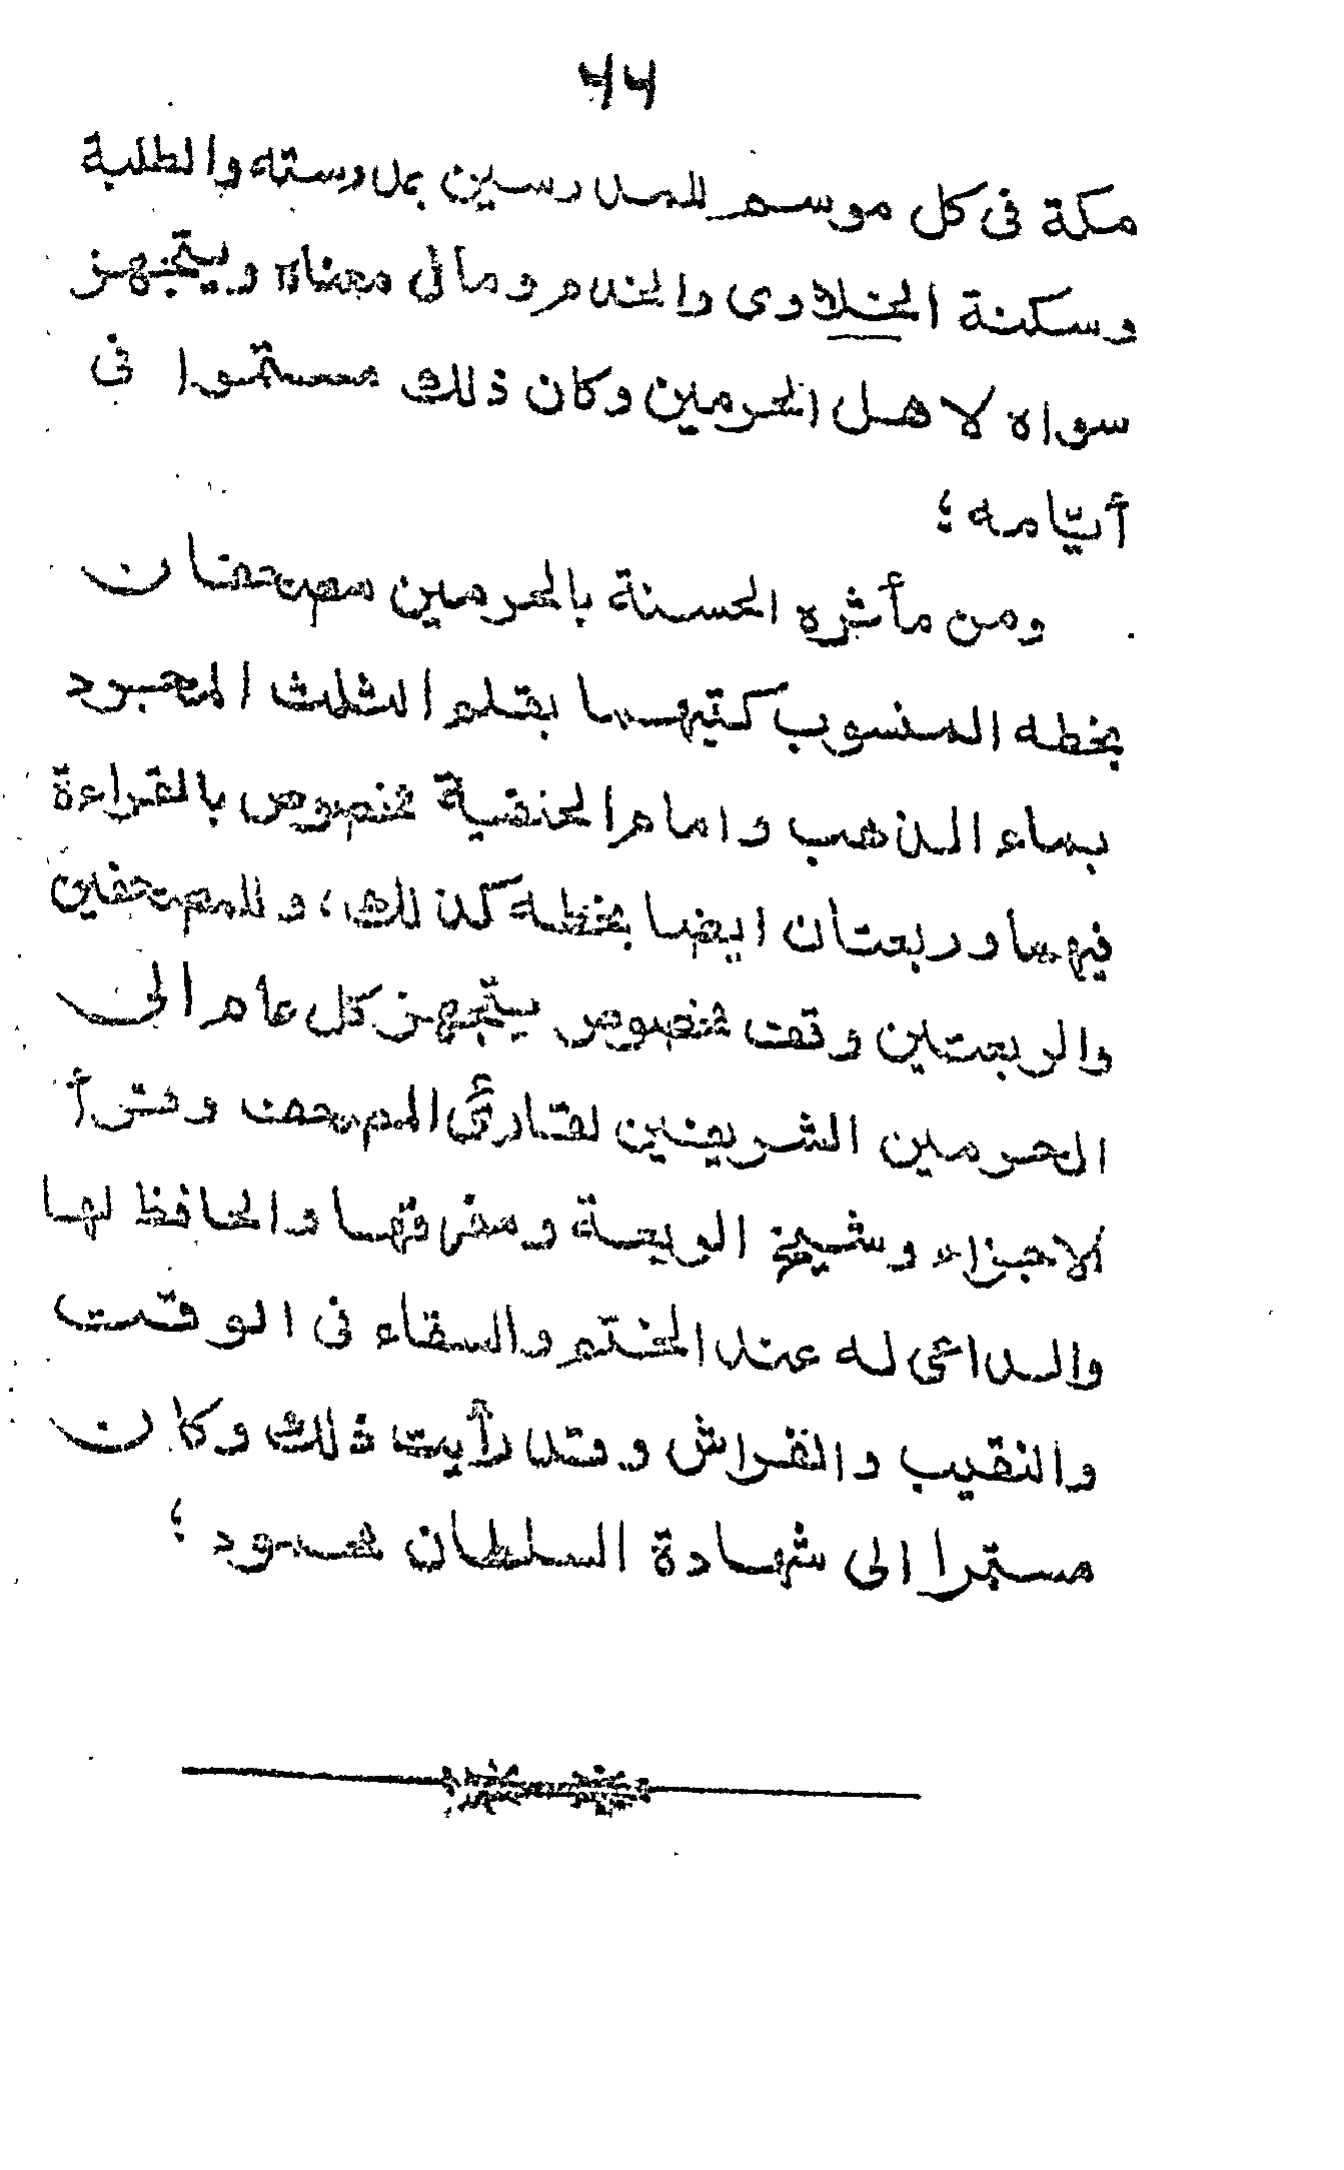 ٤٤
مكة فى كل موسم للمدرسين بمدرسته والطلبة
وسكنة الخلاوى والخدام ومالى معناه ويتجهز
سواه لاهل الحرمين وكان ذلك مستمرا فى
أيّامه؛
ومن مأثره الحسنة بالحرمين مصحفان
بخطه المنسوب كتبهما بقلم الثلث المحبود
بماء الذهب وامام الحنفية مخصوص بالقراءة
فيهما وربعتان ايضا بخطه كذلك، وللمصحفين
والربعتين وقف مخصوص يتجهز كل عام الى
الحرمين الشريفين لقارئ المصحف وقرأ
للاجزاء وشيخ الربعة ومفرقها والحافظ لها
والداعى له عند الختم والسقاء فى الوقت
والنقيب والفراش وقد رأيت ذلك وكان
مستمرا الى شهادة السلطان محمود؛